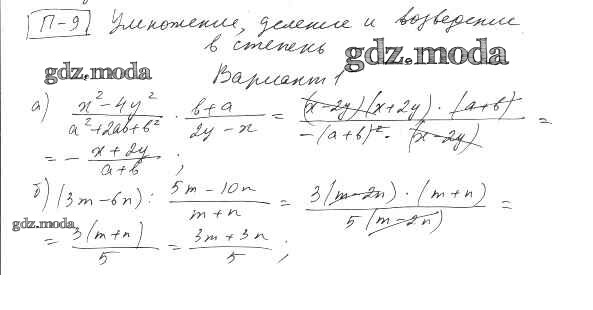 П-9 Умножение, деление и возведение
в степень gdz.moda
gdz.moda Вариант 1
а) (x² - 4y²)/(a² + 2ab + b²) · (b + a)/(2y - x) = ((x - 2y)(x + 2y) · (a + b))/(-(a + b)² · (x - 2y)) =
= - (x + 2y)/(a + b) ;
б) (3m - 6n) : (5m - 10n)/(m + n) = (3(m - 2n) · (m + n))/(5(m - 2n)) =
gdz.moda
= (3(m + n))/5 = (3m + 3n)/5 ;